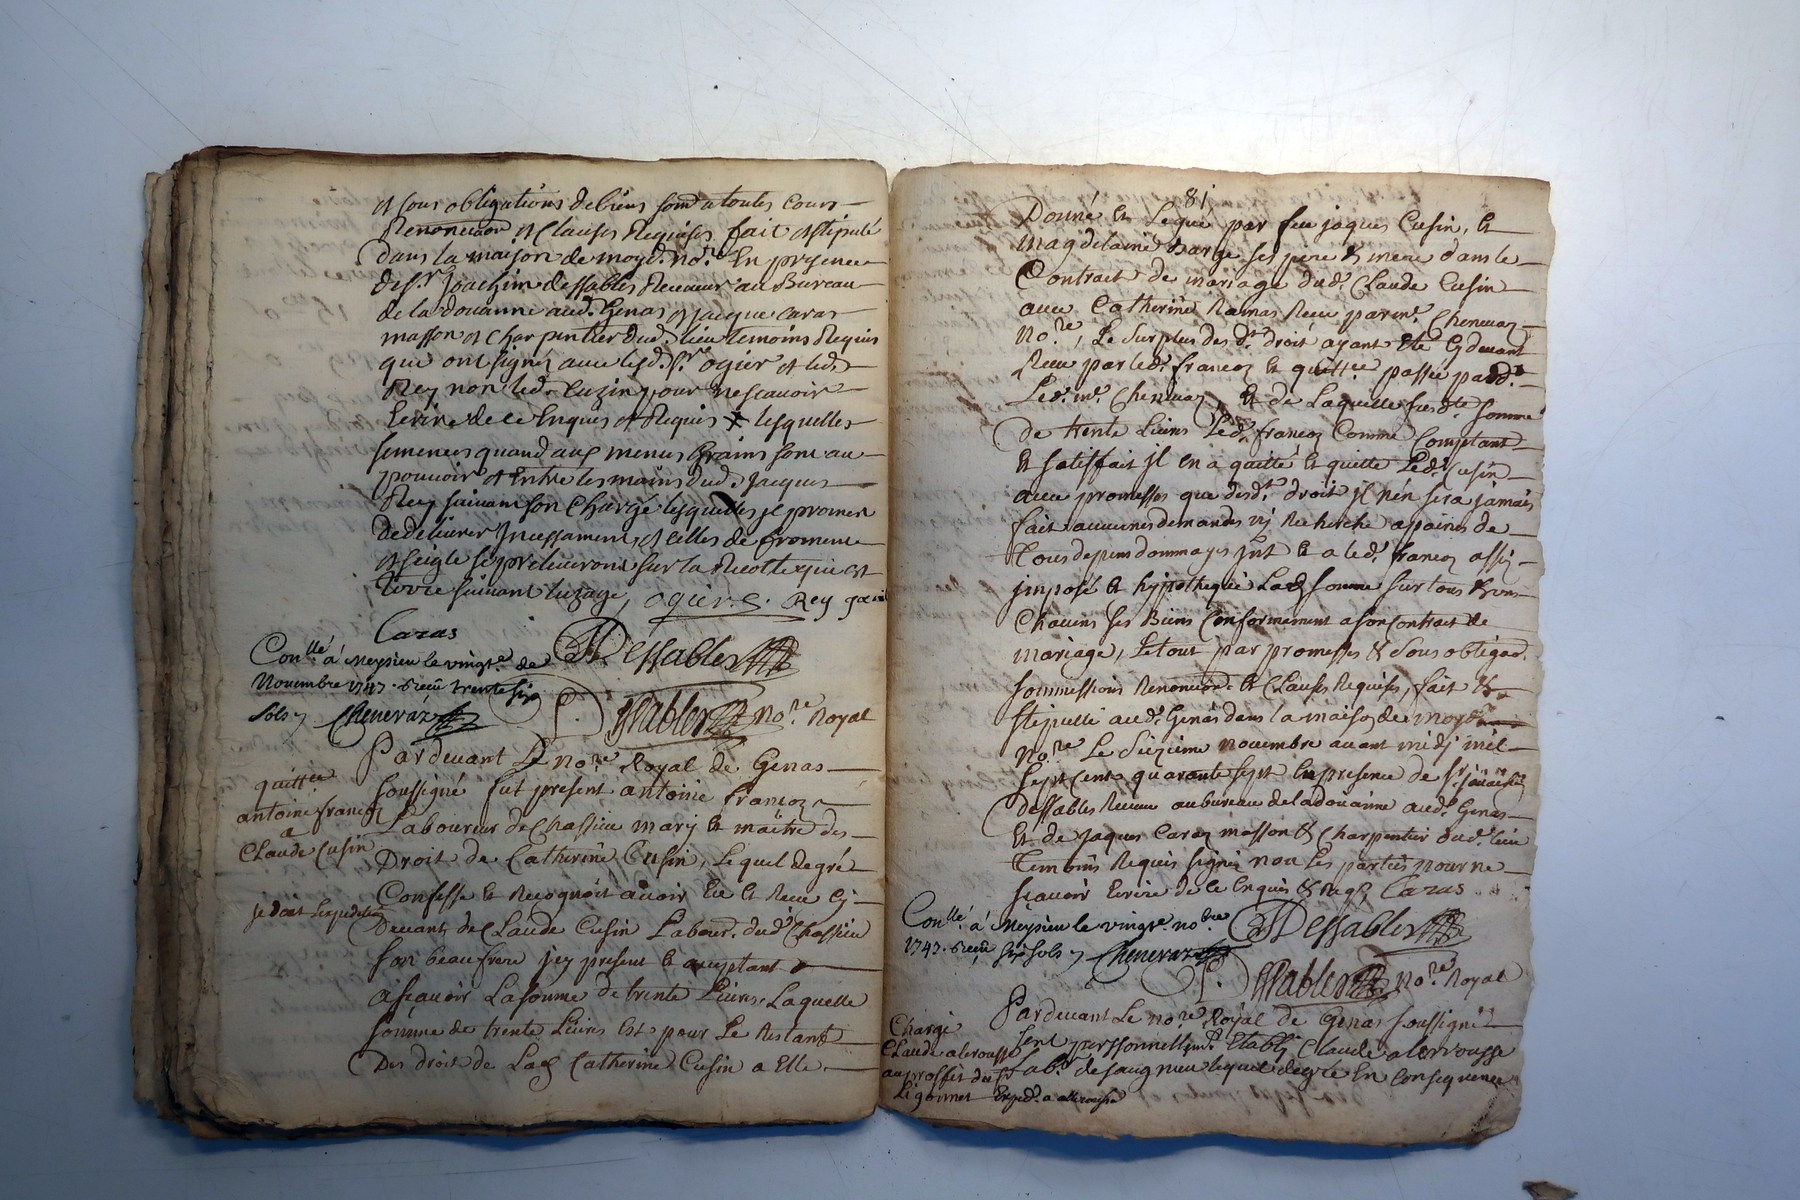 et sous obligations de biens soum. a toutes cours
Renonciaon et Clauses Requises fait et stipulé
dans la maison de moyd. no.re En presence
de s.r Joachim dessables Receveur au Bureau
de la douanne aud. Genas et jacque caras
masson et Charpentier dud. lieu temoins Requis
qui ont signés avec lesd. s.rs ogier et led.
Rey non led. cuzin pour ne scavoir
Ecrire de ce Enquis et Requis x lesquelles
semences quand aux menus Grains sont au
pouvoir et Entre les mains dud. jacques
Rey suivant son Chargé lesquelles jl promet
de delivrer Jncessament, et celles de froment
et seigle se preleveront sur la Recolte qui est
suivant luzage, ogier. Rey
Caras
Dessables
Con.llé à Meysieu le vingt.e de
Novembre 1747. Receu trente six
sols
Cheneraz
P. Dessables no.re Royal
Pardevant Le no.re Royal de Genas
soussigné fut present antoine francoz
Laboureur de Chassieu mary et maitre des
Droit de Catherine Cusin, Lequel de gré
Confesse et Recognoit avoir Eu et Receu cy
Devant de Claude Cusin Labour. dud. Chassieu
son beaufrere jcy present et acceptant
ascavoir La somme de trente Livres, Laquelle
somme de trente Livres Est pour Le Restant
Des droit de Lad. Catherine Cusin a Elle
quitt.ce
antoine francoz
a
Claude Cusin
je doit Lexpedition
81
Donné et Legué par feu jaques Cusin, et
magdelaine Barge ses pere et mere dans le
Contrat de mariage dud. Claude Cusin
avec Catherine Ramas Receu par m.e Cheneraz
No.re, Le surplus desd. droit ayant Eté Cydevant
Receu par led. francoz et quitt.ce passée pard.t
Led. m.e Cheneraz, et de Laquelle susd.te somme
de trente Livres Led. francoz Comme Comptant
et satisfait jl en a quitté et quitte Led. Cusin
avec promesses que desd. droit jl n'en sera jamais
fait aucunes demandes ny Recherche a paines de
Tous depens dommages jnt et a led. francoz assi
jmposé et hypothequé Lad. somme sur tous et uns
Chacuns ses Biens Conformement a son Contrat de
mariage, Le tout par promesses et sous obligaon.
sommessions Renonciaon. et Clauses Requises, fait et
stipullé aud. Genas dans la maison de moyd.
No.re Le seizieme novembre avant midj mil
sept Cents quarante sept En presence de s.r joachin
dessables Receveur au bureau de la douanne aud. Genas
et de jaques Caraz masson et Charpentier dud. lieu
temoins Requis signés non les parties pour ne
scavoir Ecrire de ce Enquis et Req. Caras
Dessables
Con.llé à Meysieu le vingt.e no.bre
1747. Receu six sols
Cheneraz
P. Dessables no.re Royal
Pardevant Le no.re Royal de Genas soussigné
sent personnellem.t Etabli Claude alerousse
Lab.r de saugnieu lequel de gré En Consequence
Chargé
Claude alerousse
au proffit du s.r
Ligonnet Exped. a alerousse